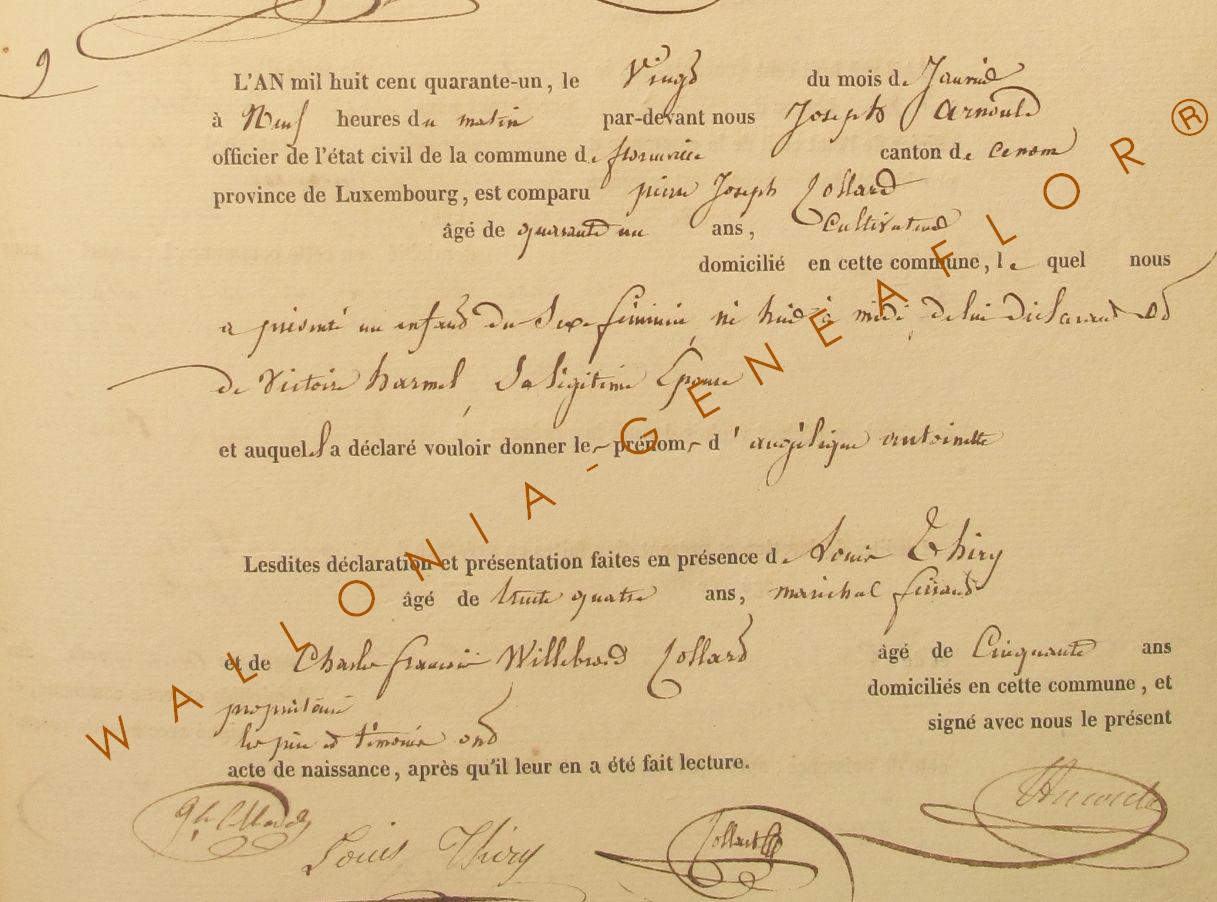 9
L'AN mil huit cent quarante-un, le Vingt du mois de Janvier
à Neuf heures du matin par-devant nous Joseph Arnould
officier de l'état civil de la commune de florenville canton de
province de Luxembourg, est comparu pierre Joseph Collard
âgé de quarante un ans, Cultivateur
domicilié en cette commune, le quel nous
a présenté un enfant du Sexe féminin né hier à midi de lui déclarant et
de Victoire harmel Sa légitime Épouse
et auquel il a déclaré vouloir donner les prénoms d'angélique antoinette
Lesdites déclaration et présentation faites en présence de Louis Thiry
âgé de trente quatre ans, maréchal ferrant
et de Charles françois Willebrord Collard âgé de Cinquante ans
propriétaire domiciliés en cette commune, et
les père et témoins ont signé avec nous le présent
acte de naissance, après qu'il leur en a été fait lecture.
Louis Thiry Collard Arnould
WALLONIA-GENEAFLOR®